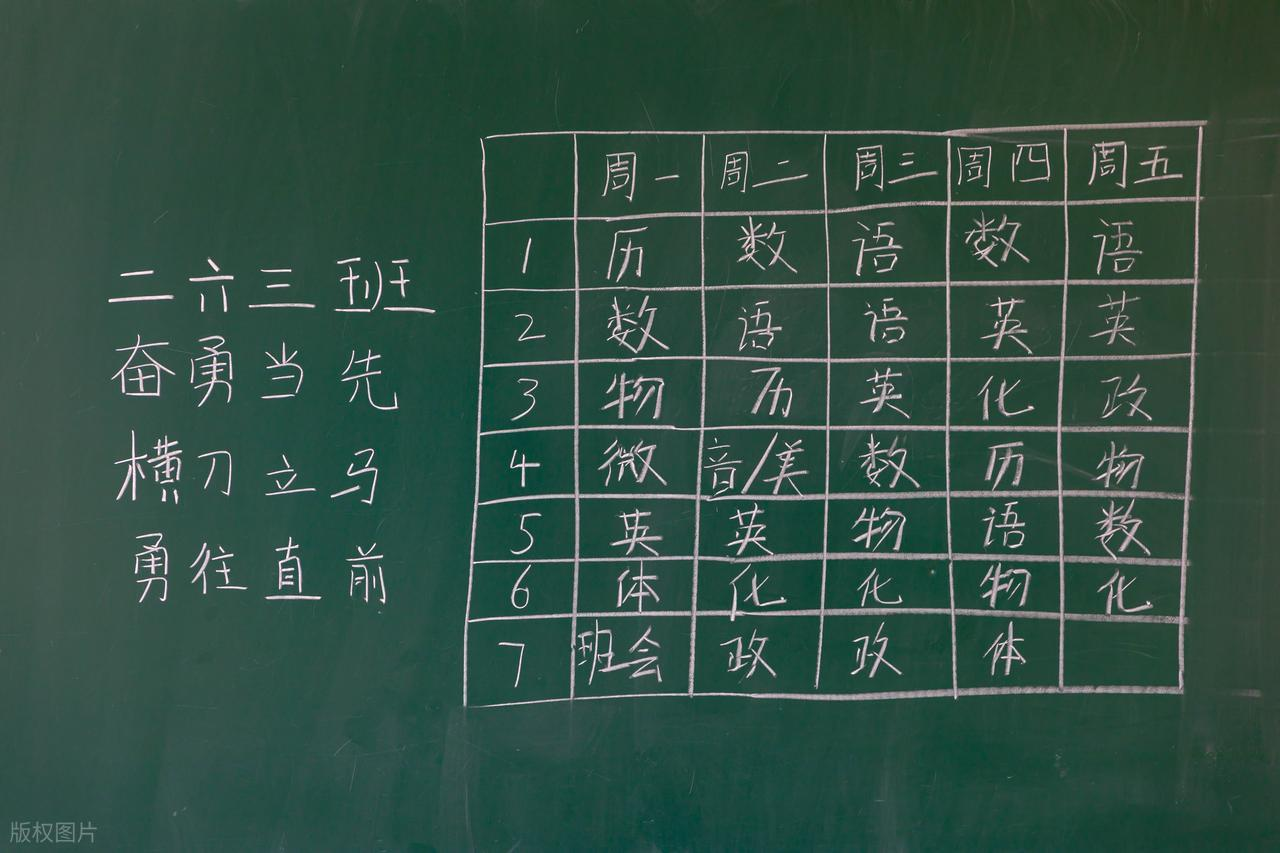 二六三班
奋勇当先
横刀立马
勇往直前
周一 周二 周三 周四 周五
1 历 数 语 数 语
2 数 语 语 英 英
3 物 历 英 化 政
4 微 音/美 数 历 物
5 英 英 物 语 数
6 体 化 化 物 化
7 班会 政 政 体
版权图片